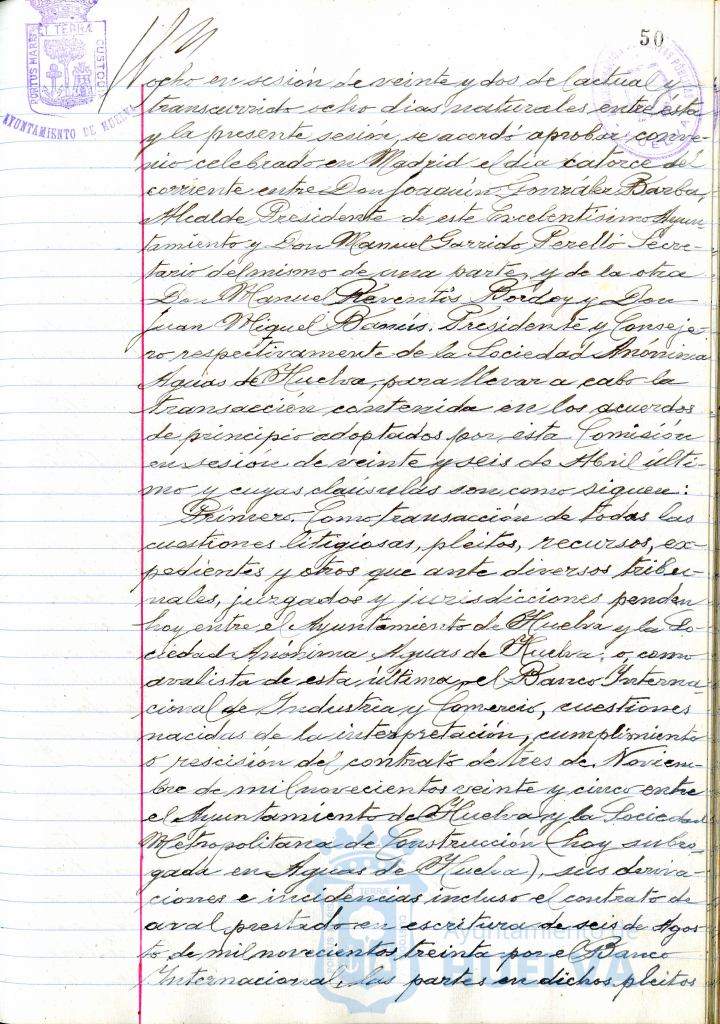 50
PORTUS MARIS ET TERRÆ CUSTODIA
AYUNTAMIENTO DE HUELVA
ocho en sesión de veinte y dos del actual y
transcurrido ocho dias naturales entre ésta
y la presente sesión, se acordó aprobar conve-
nio celebrado en Madrid el día catorce del
corriente entre Don Joaquín González Barba,
Alcalde Presidente de este Excelentísimo Ayun-
tamiento y Don Manuel Garrido Perelló Secre-
tario del mismo de una parte, y de la otra
Don Manuel Reventós Bordoy y Don
Juan Miguel Banús, Presidente y Conseje-
ro respectivamente de la Sociedad Anónima
Aguas de Huelva, para llevar a cabo la
transacción contenida en los acuerdos
de principio adoptados por esta Comisión
en sesión de veinte y seis de Abril últi-
mo y cuyas claúsulas son como siguen:
Primero. Como transacción de todas las
cuestiones litigiosas, pleitos, recursos, ex-
pedientes y otros que ante diversos tribu-
nales, juzgados y jurisdicciones penden
hoy entre el Ayuntamiento de Huelva y la So-
ciedad Anónima Aguas de Huelva, o como
avalista de esta última, el Banco Interna-
cional de Industria y Comercio, cuestiones
nacidas de la interpretación, cumplimiento
o rescisión del contrato de tres de Noviem-
bre de mil novecientos veinte y cinco entre
el Ayuntamiento de Huelva y la Sociedad
Metropolitana de Construcción (hoy subro-
gada en Aguas de Huelva), sus deriva-
ciones e incidencias incluso el contrato de
aval prestado en escritura de seis de Agos-
to de mil novecientos treinta por el Banco
Internacional, las partes en dichos pleitos
Ayuntamiento de
HUELVA